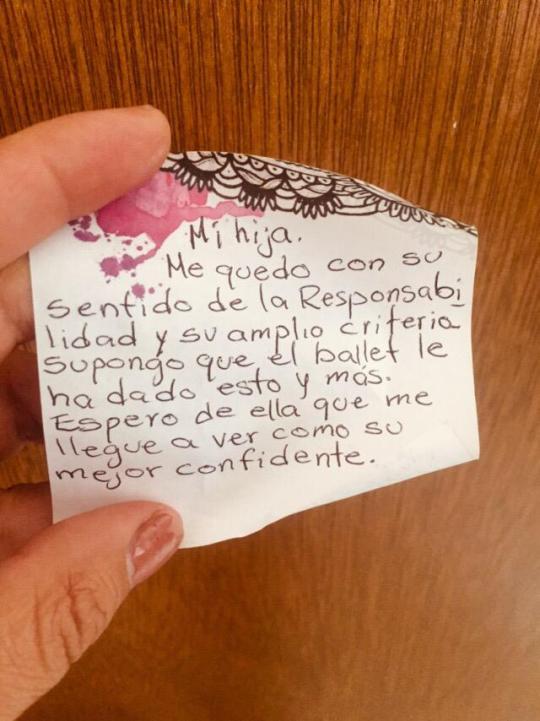 Mi hija.
Me quedo con su
sentido de la Responsabi
lidad y su amplio criteria
supongo que el ballet le
ha dado esto y más.
Espero de ella que me
llegue a ver como su
mejor confidente.